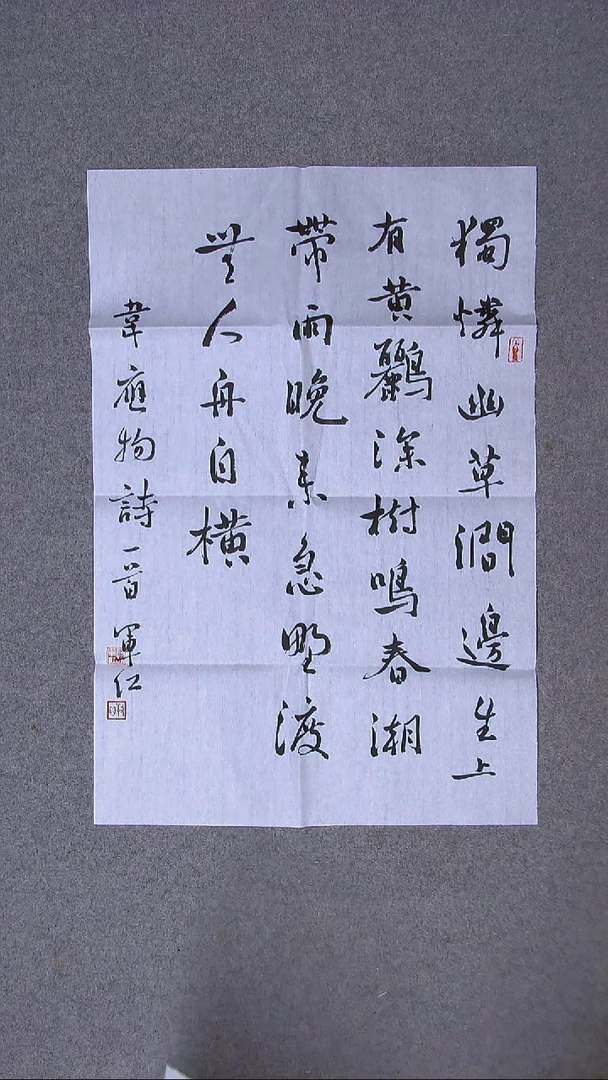 獨憐幽草澗邊生上
有黃鸝深樹鳴春潮
帶雨晚來急野渡
無人舟自橫
韋應物詩一首 軍仁